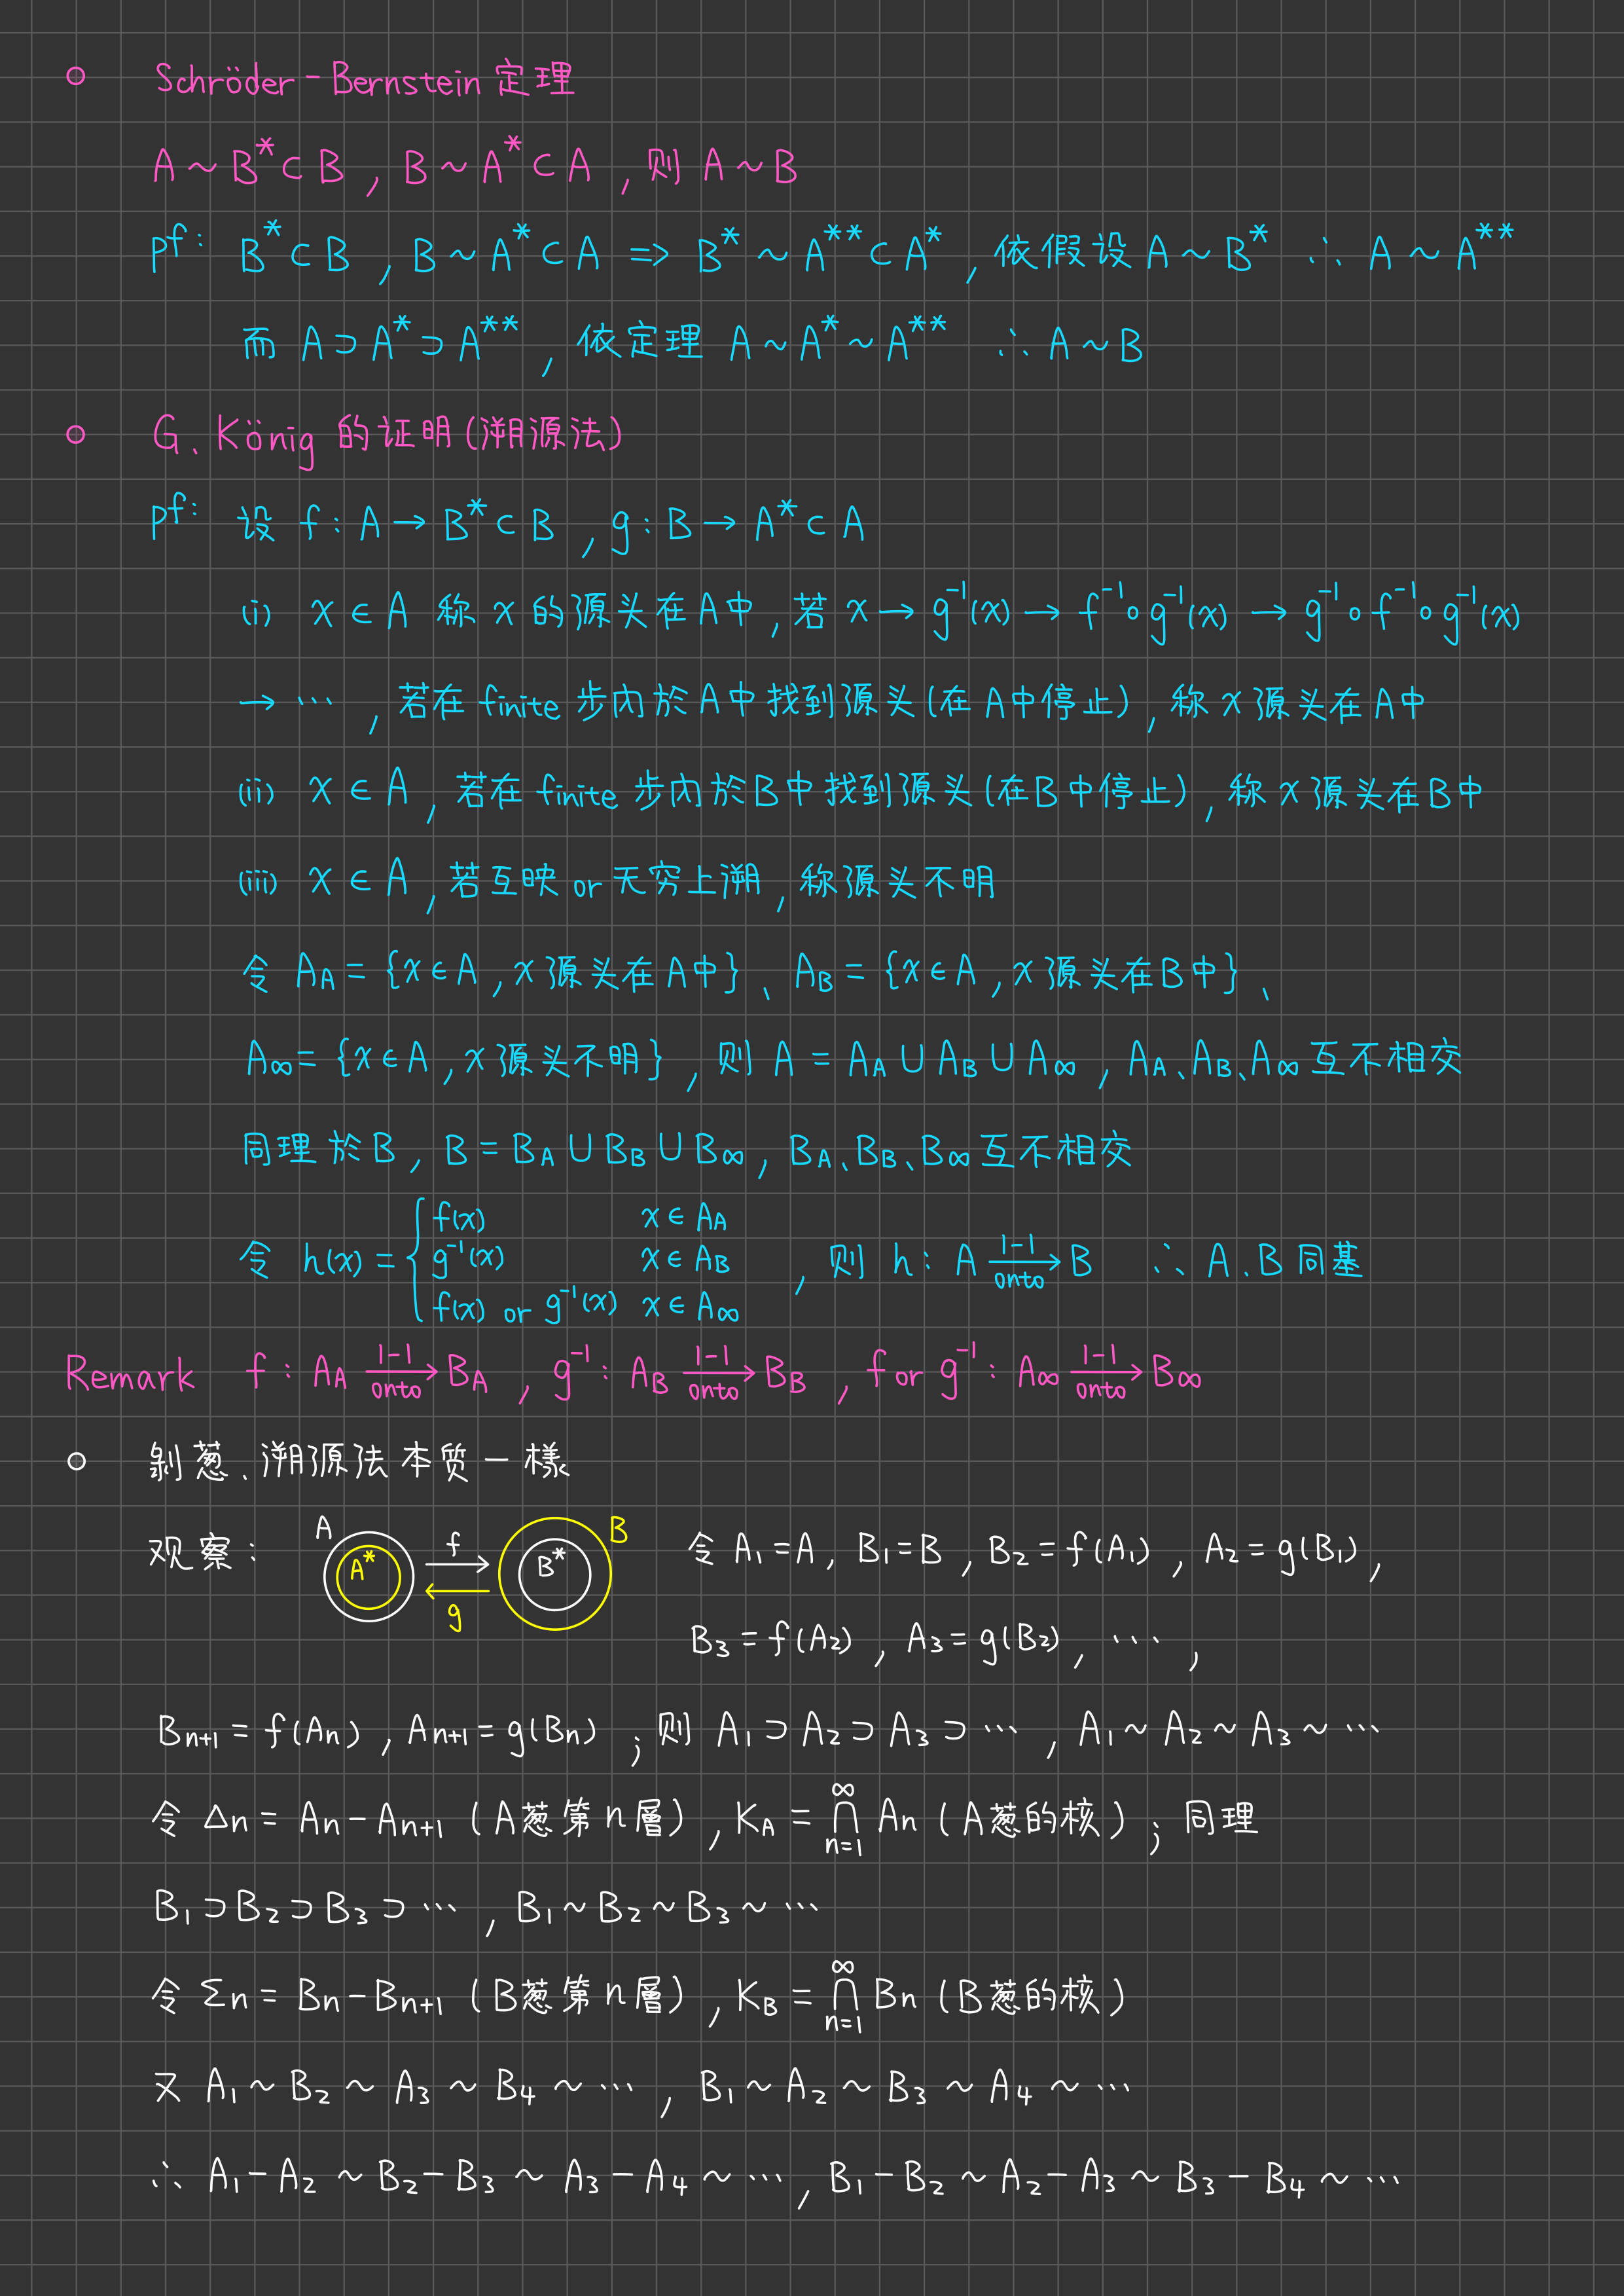 ○ Schröder-Bernstein 定理
A ~ B* ⊂ B , B ~ A* ⊂ A , 则 A ~ B
pf: B* ⊂ B , B ~ A* ⊂ A => B* ~ A** ⊂ A* , 依假设 A ~ B* ∴ A ~ A**
而 A ⊃ A* ⊃ A** , 依定理 A ~ A* ~ A** ∴ A ~ B
○ G. König 的证明(溯源法)
pf: 设 f : A → B* ⊂ B , g : B → A* ⊂ A
(i) x ∈ A 称 x 的源头在A中, 若 x → g⁻¹(x) → f⁻¹∘g⁻¹(x) → g⁻¹∘f⁻¹∘g⁻¹(x)
→ ⋯ , 若在 finite 步內於A中找到源头(在A中停止), 称 x 源头在A中
(ii) x ∈ A , 若在 finite 步內於B中找到源头(在B中停止), 称 x 源头在B中
(iii) x ∈ A , 若互映 or 无穷上溯, 称源头不明
令 A_A = {x ∈ A , x 源头在A中}、A_B = {x ∈ A , x 源头在B中}、
A_∞ = {x ∈ A , x 源头不明} , 则 A = A_A ∪ A_B ∪ A_∞ , A_A、A_B、A_∞ 互不相交
同理於B , B = B_A ∪ B_B ∪ B_∞ , B_A、B_B、B_∞ 互不相交
令 h(x) = { f(x) x ∈ A_A
g⁻¹(x) x ∈ A_B
f(x) or g⁻¹(x) x ∈ A_∞ , 则 h : A 1-1→onto B ∴ A、B 同基
Remark f : A_A 1-1→onto B_A , g⁻¹ : A_B 1-1→onto B_B , f or g⁻¹ : A_∞ 1-1→onto B_∞
○ 剝葱、溯源法本质一樣
观察 : A A* f g B* B 令 A₁ = A , B₁ = B , B₂ = f(A₁) , A₂ = g(B₁) ,
B₃ = f(A₂) , A₃ = g(B₂) , ⋯ ,
Bn+1 = f(An) , An+1 = g(Bn) ; 则 A₁ ⊃ A₂ ⊃ A₃ ⊃ ⋯ , A₁ ~ A₂ ~ A₃ ~ ⋯
令 Δn = An − An+1 (A葱第n層) , K_A = ∞∩n=1 An (A葱的核) ; 同理
B₁ ⊃ B₂ ⊃ B₃ ⊃ ⋯ , B₁ ~ B₂ ~ B₃ ~ ⋯
令 Σn = Bn − Bn+1 (B葱第n層) , K_B = ∞∩n=1 Bn (B葱的核)
又 A₁ ~ B₂ ~ A₃ ~ B₄ ~ ⋯ , B₁ ~ A₂ ~ B₃ ~ A₄ ~ ⋯
∴ A₁ − A₂ ~ B₂ − B₃ ~ A₃ − A₄ ~ ⋯ , B₁ − B₂ ~ A₂ − A₃ ~ B₃ − B₄ ~ ⋯